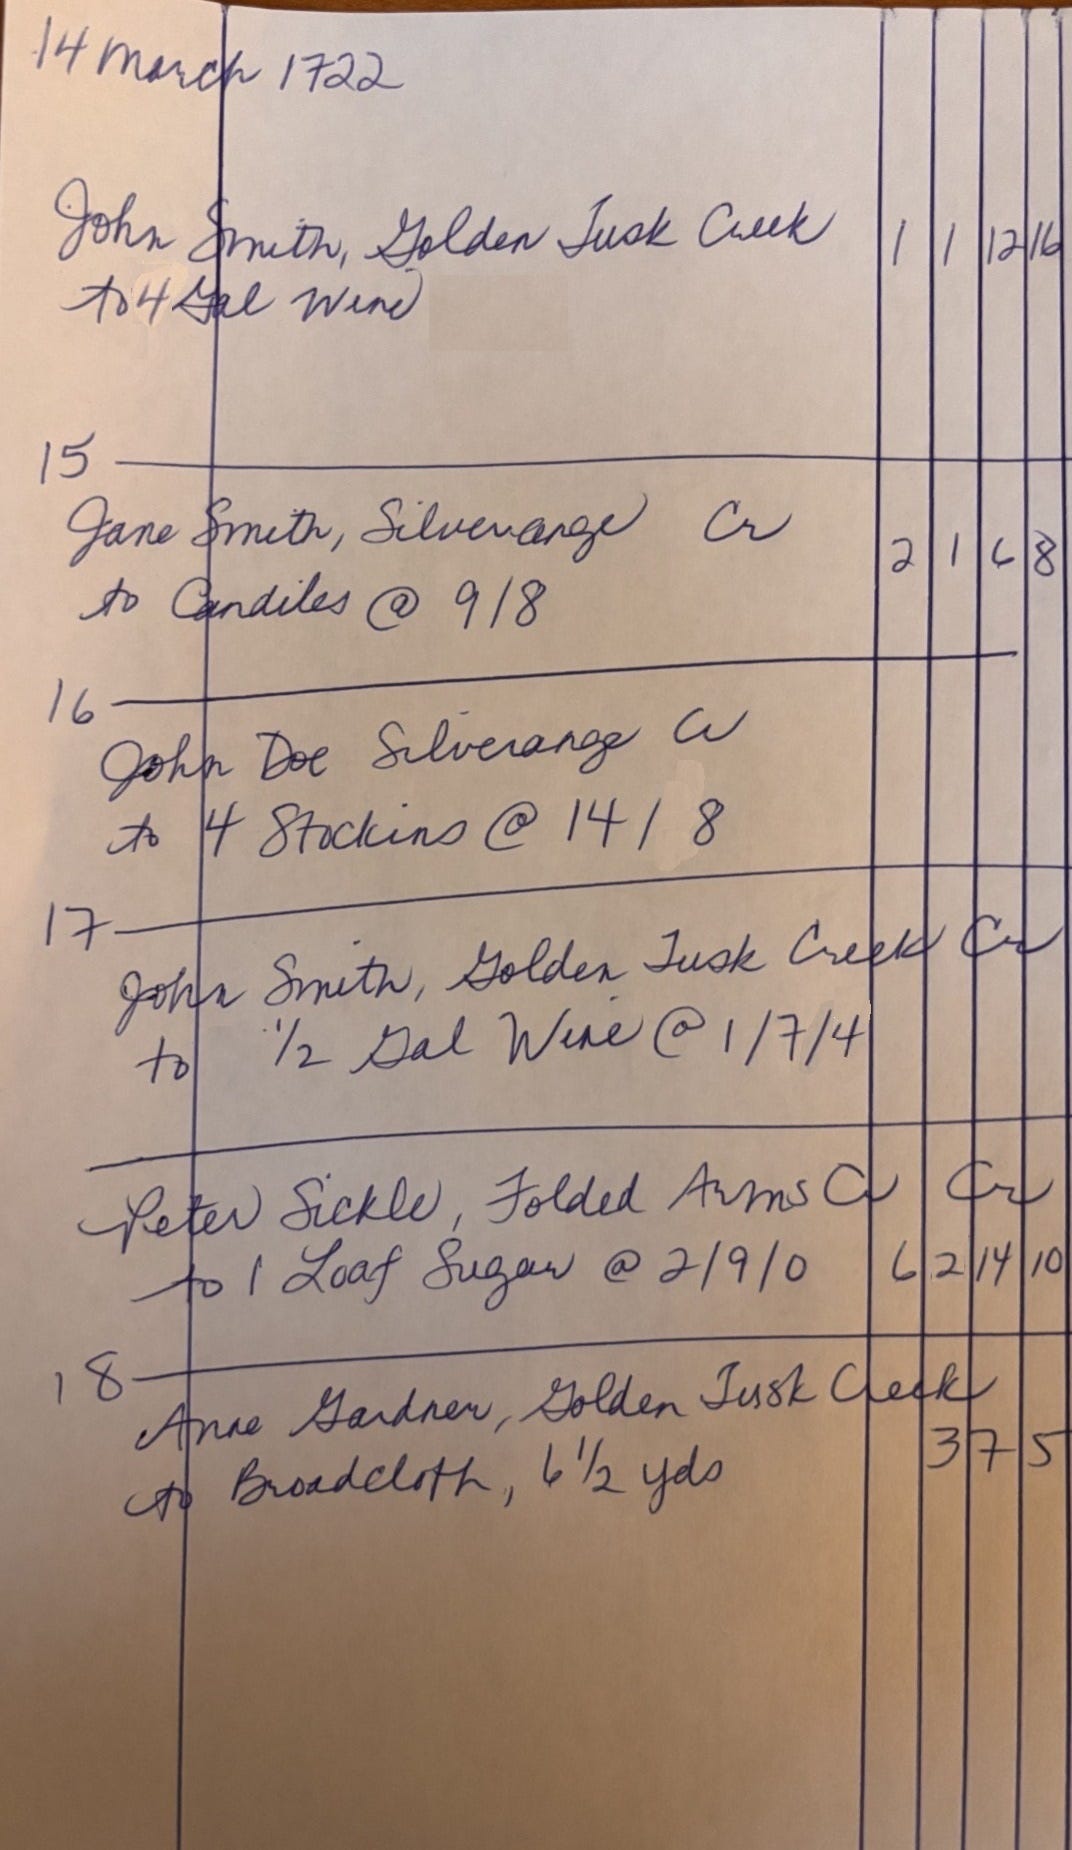 14 March 1722
John Smith, Golden Tusk Creek 1 1 12 16
to 4 Gal Wine
15
Jane Smith, Silverange Cr 2 1 6 8
to Candiles @ 9/8
16
John Doe Silverange Cr
to 4 Stockins @ 14/8
17
John Smith, Golden Tusk Creek Cr
to 1/2 Gal Wine @ 1/7/4
Peter Sickle, Folded Arms Cr Cr
to 1 Loaf Sugar @ 2/9/0 6 2 14 10
18
Anne Gardner, Golden Tusk Creek
to Broadcloth, 6 1/2 yds 3 7 5